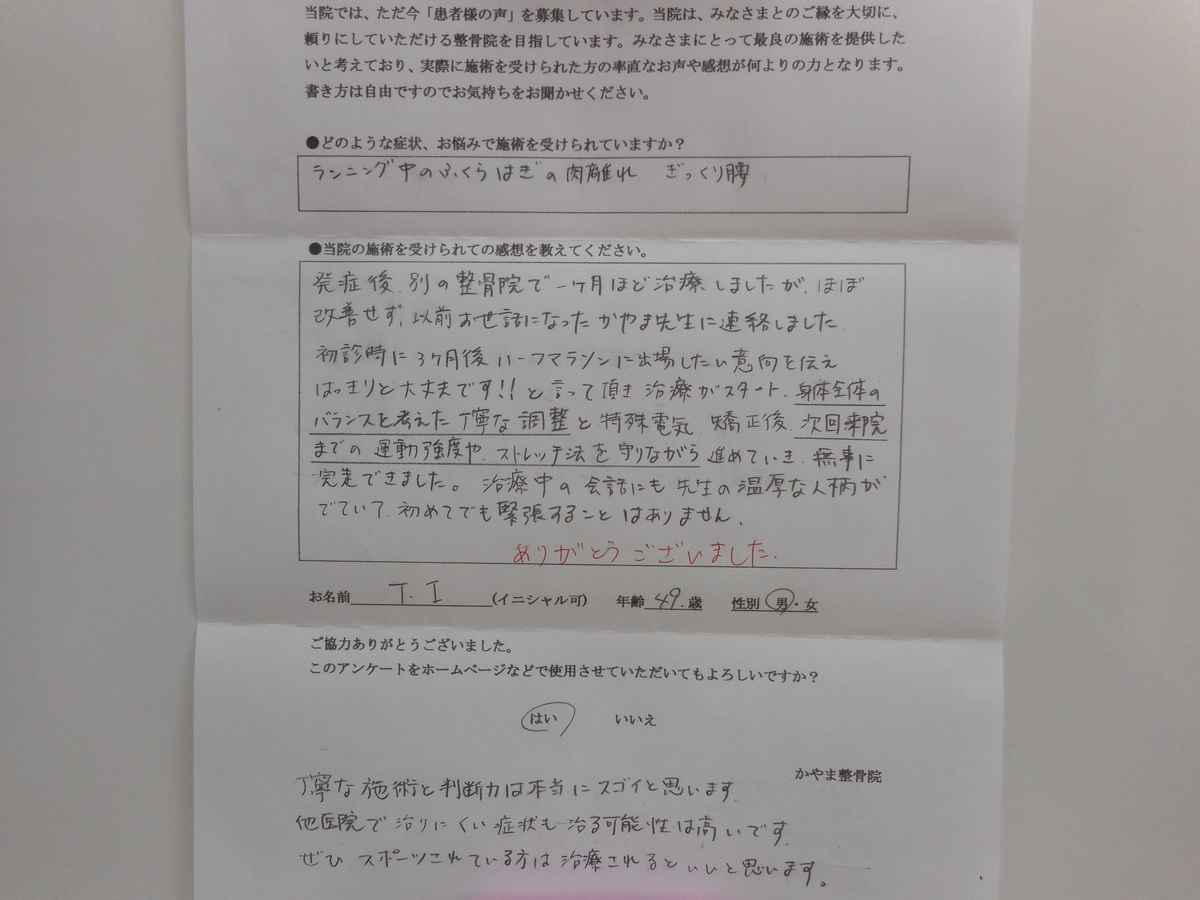 当院では、ただ今「患者様の声」を募集しています。当院は、みなさまとのご縁を大切に、
頼りにしていただける整骨院を目指しています。みなさまにとって最良の施術を提供した
いと考えており、実際に施術を受けられた方の率直なお声や感想が何よりの力となります。
書き方は自由ですのでお気持ちをお聞かせください。
●どのような症状、お悩みで施術を受けられていますか？
ランニング中のふくらはぎの肉離れ ぎっくり腰
●当院の施術を受けられての感想を教えてください。
発症後、別の整骨院で一ヶ月ほど治療しましたが、ほぼ
改善せず、以前お世話になったかやま先生に連絡しました
初診時に3ヶ月後ハーフマラソンに出場したい意向を伝え
はっきりと大丈夫です!!と言って頂き治療がスタート、身体全体の
バランスを考えた丁寧な調整と特殊電気、矯正後、次回来院
までの運動強度や、ストレッチ法を守りながら進めていき、無事に
完走できました。治療中の会話にも先生の温厚な人柄が
でていて、初めてでも緊張することはありません。
ありがとうございました。
お名前 T. I (イニシャル可) 年齢 49.歳 性別 男・女
ご協力ありがとうございました。
このアンケートをホームページなどで使用させていただいてもよろしいですか？
はい いいえ
かやま整骨院
丁寧な施術と判断力は本当にスゴイと思います。
他医院で治りにくい症状も治る可能性は高いです。
ぜひスポーツされている方は治療されるといいと思います。